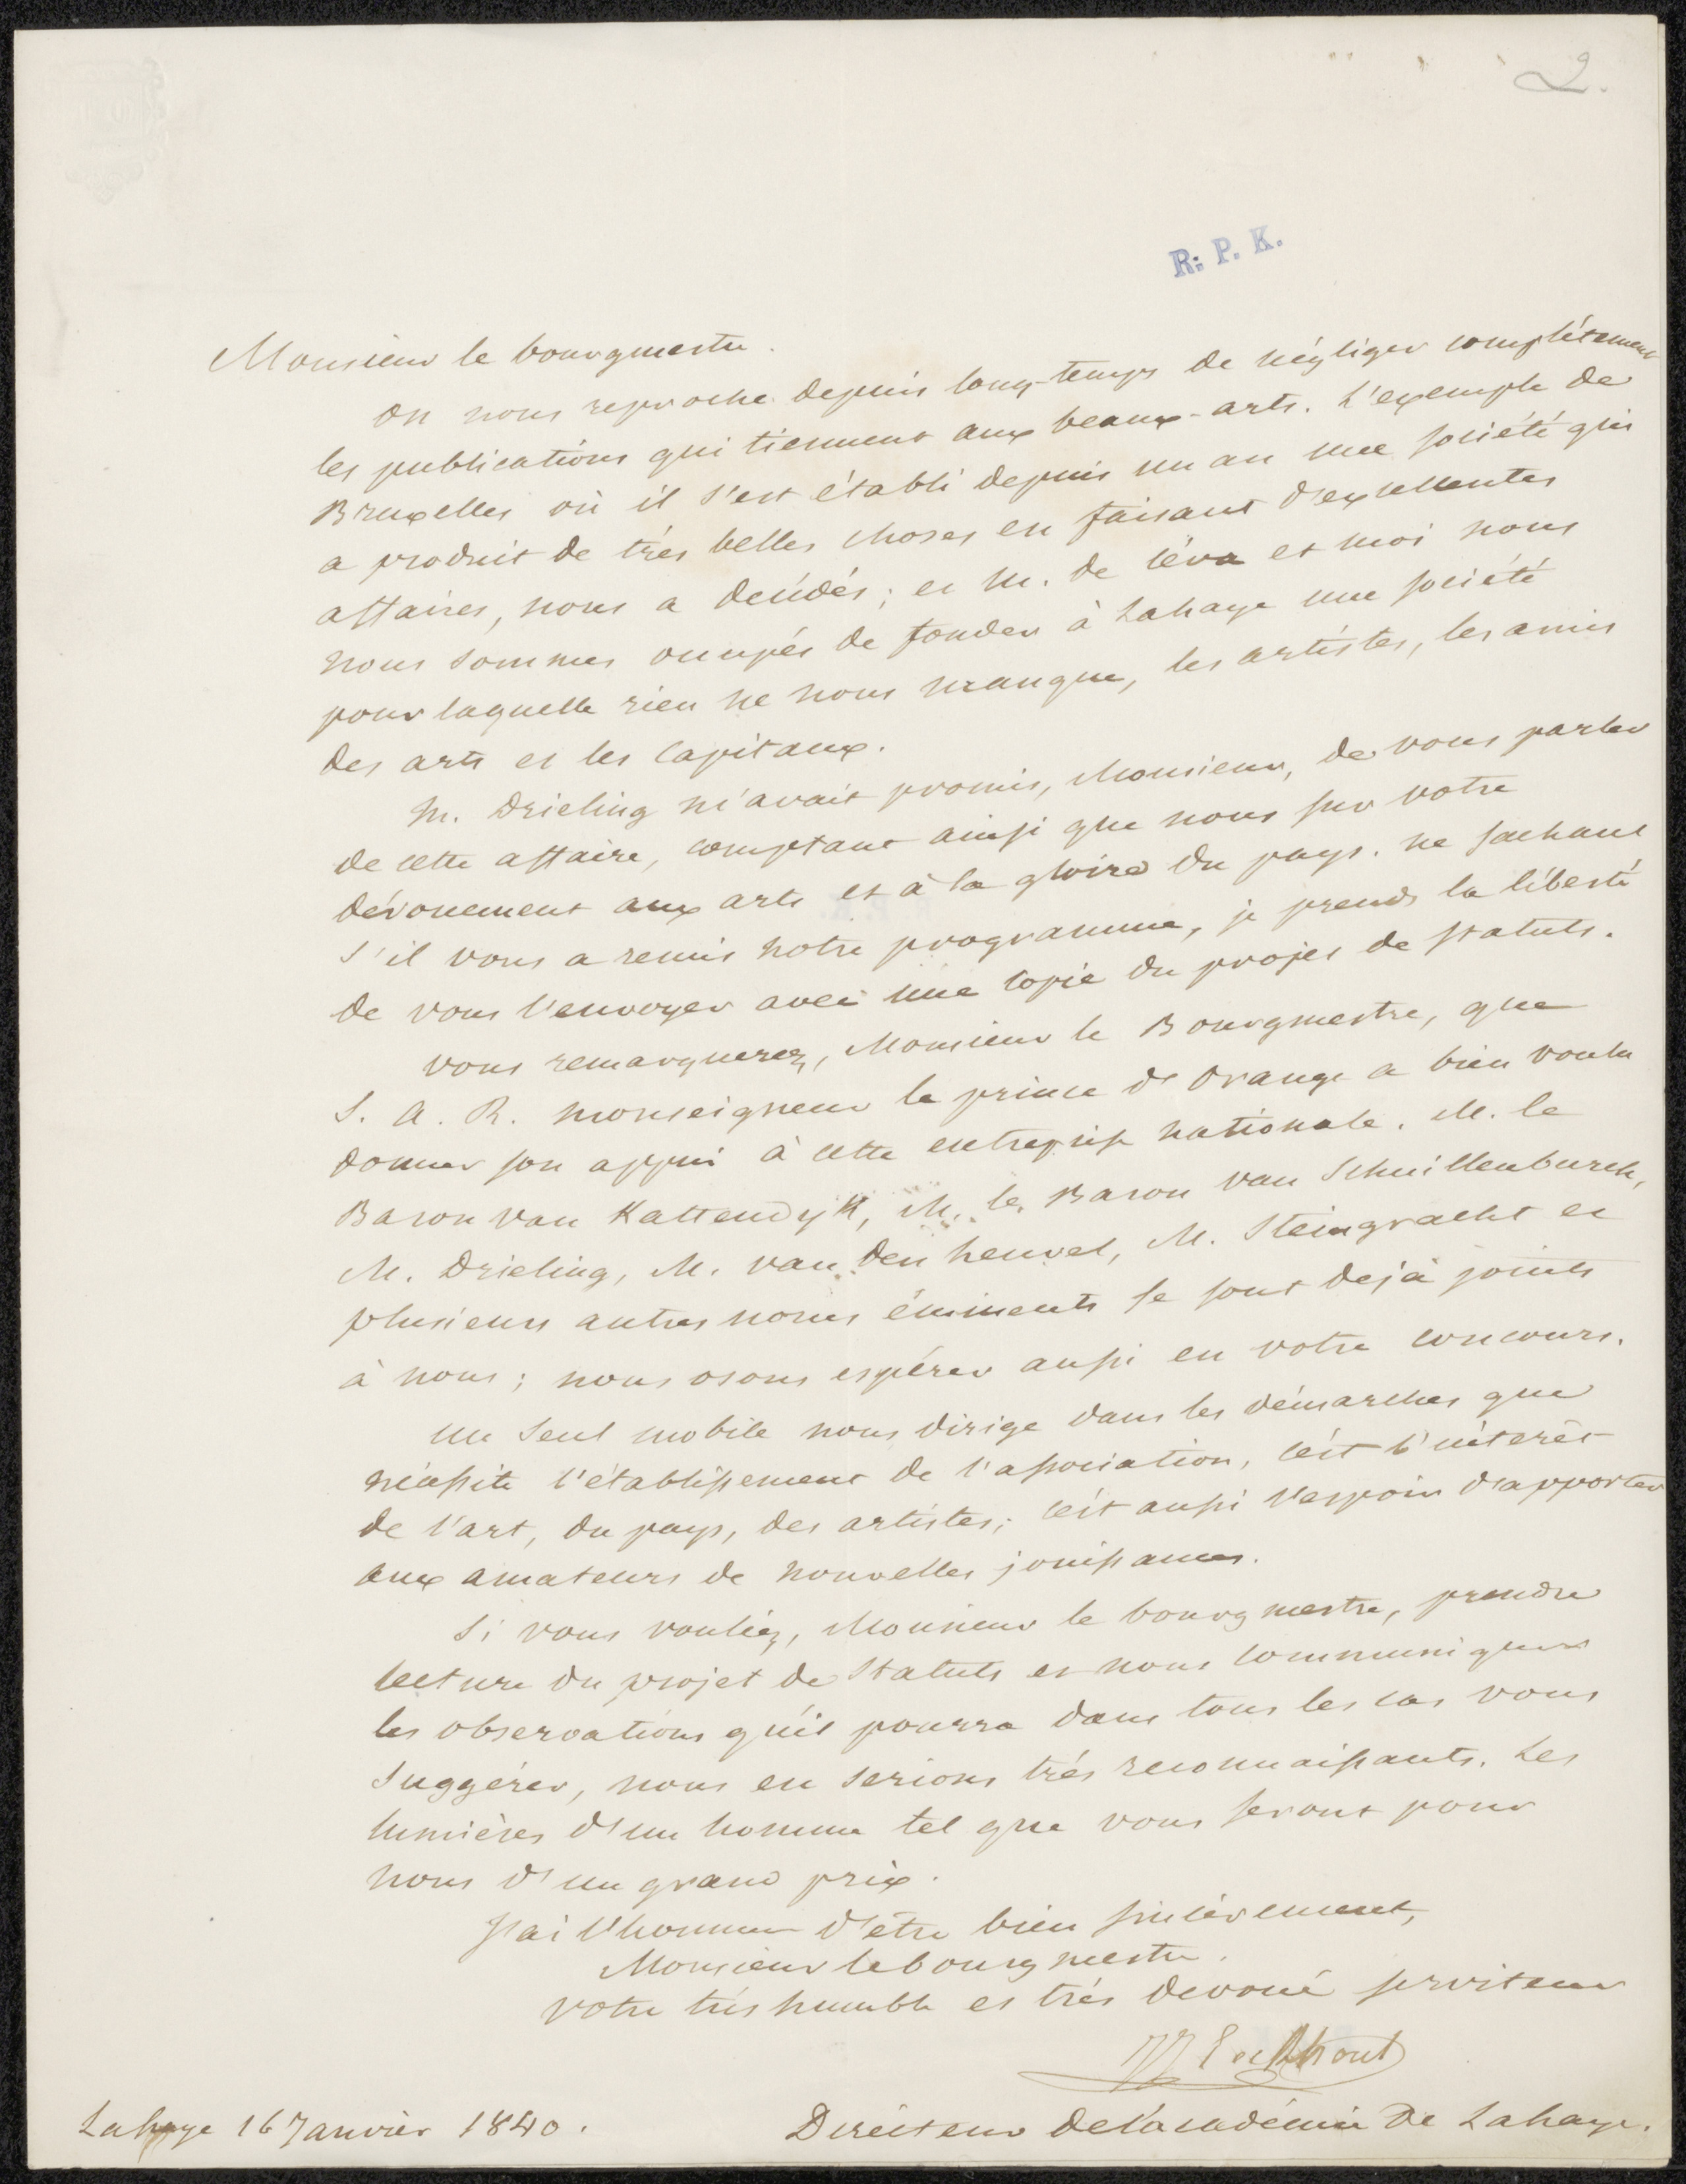 2.
R. P. K.
Monsieur le bourgmestre.
On nous reproche depuis long-temps de négliger complétement
les publications qui tiennent aux beaux-arts. L'exemple de
Bruxelles où il s'est établi depuis un an une société qui
a produit de très belles choses en faisant d'excellentes
affaires, nous a décidés; et M. de Céva et moi nous
nous sommes occupés de fonder à Lahaye une société
pour laquelle rien ne nous manque, les artistes, les amis
des arts et les capitaux.
M. Drieling m'avait promis, Monsieur, de vous parler
de cette affaire, comptant ainsi que nous sur votre
dévouement aux arts et à la gloire du pays. ne sachant
s'il vous a remis notre programme, je prends la liberté
de vous l'envoyer avec une copie du projet de statuts.
Vous remarquerez, Monsieur le Bourgmestre, que
S. A. R. monseigneur le prince d'Orange a bien voulu
donner son appui à cette entreprise nationale. M. le
Baron van Kattendyk, M. le Baron van Schuillenburch,
M. Drieling, M. van den heuvel, M. Steingracht et
plusieurs autres noms éminents se sont dejà joints
à nous; nous osons espérer aussi en votre concours.
Un seul mobile nous dirige dans les démarches que
nécessite l'établissement de l'association, c'est l'intérêt
de l'art, du pays, des artistes; c'est aussi l'espoir d'apporter
aux amateurs de nouvelles jouissances.
Si vous vouliez, Monsieur le bourgmestre, prendre
lecture du projet de Statuts et nous communiquer
les observations qu'il pourra dans tous les cas vous
suggérer, nous en serions très reconnaissants. Les
lumières d'un homme tel que vous seront pour
nous d'un grand prix.
J'ai l'honneur d'être bien sincèrement,
Monsieur le bourgmestre.
votre très humble et très devoué serviteur
JJ Eeckhout
Lahaye 16 Janvier 1840.
Directeur de l'académie De Lahaye.